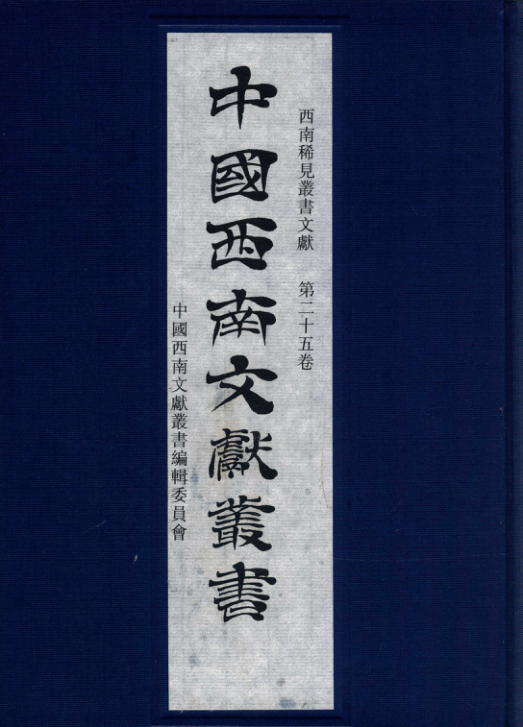 西南稀見叢書文獻 第二十五卷
中國西南文獻叢書
中國西南文獻叢書編輯委員會